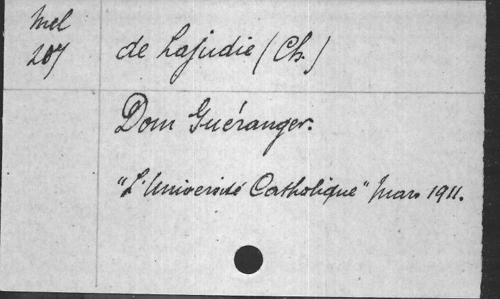 Mel
207
de Lajudie (Ch.)
Dom Guéranger.
"L'Université Catholique" Mars 1911.